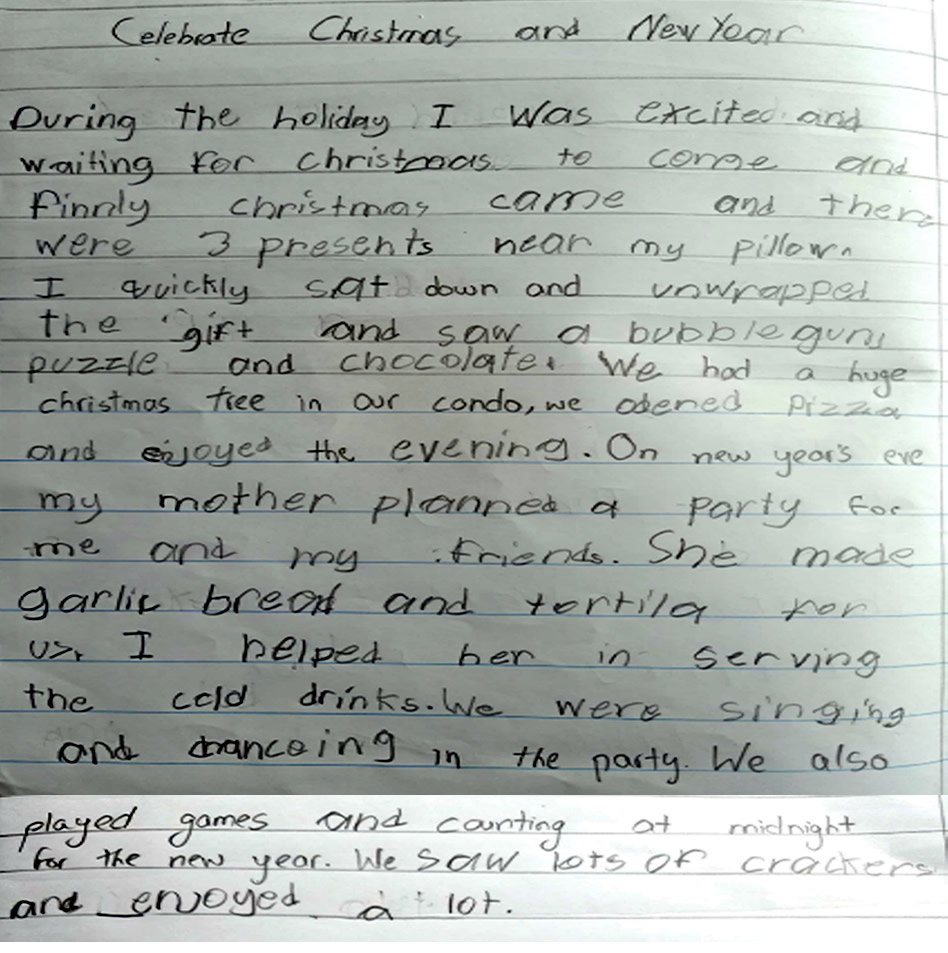 Celebrate Christmas and New Year
During the holiday I was excited and
waiting for christmas to come and
finnly christmas came and there
were 3 presents near my pillow.
I quickly sat down and unwrapped
the gift and saw a bubble gun,
puzzle and chocolate. We had a huge
christmas tree in our condo, we odened pizza
and enjoyed the evening. On new year's eve
my mother planned a party for
me and my friends. She made
garlic bread and tortila for
us. I helped her in serving
the cold drinks. We were singing
and danceing in the party. We also
played games and counting at midnight
for the new year. We saw lots of crackers
and enjoyed a lot.